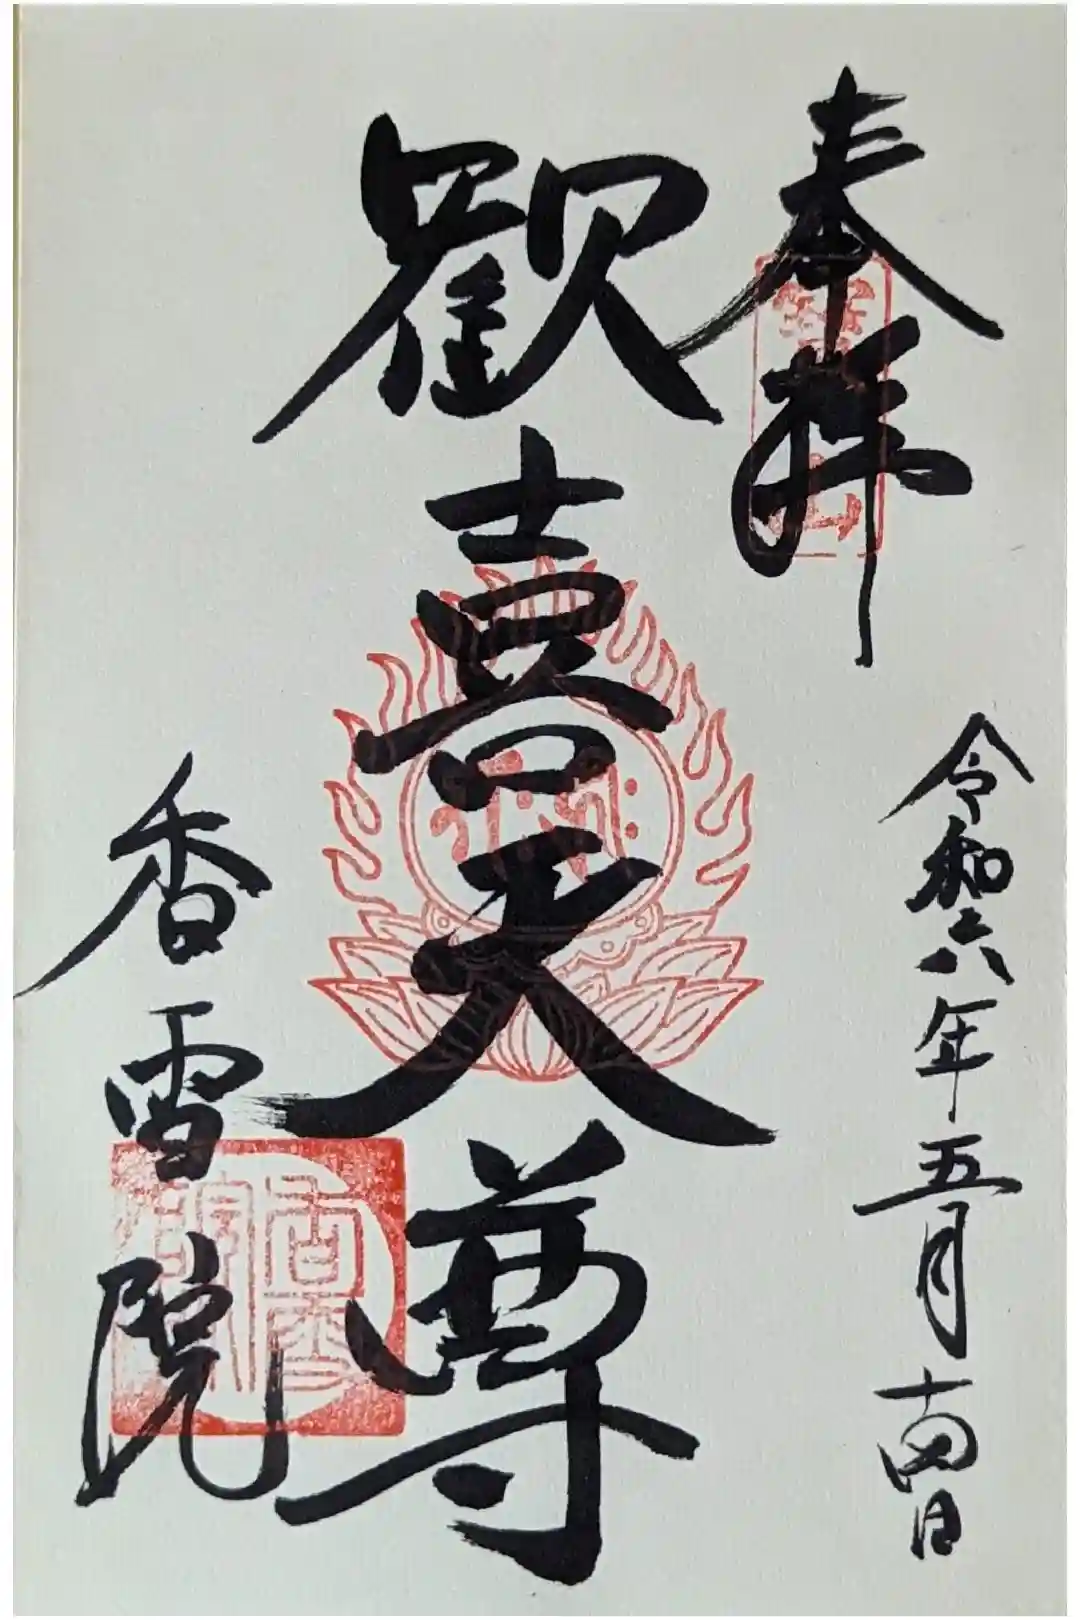 奉拝
令和六年五月十四日
歓喜天尊
香雪院